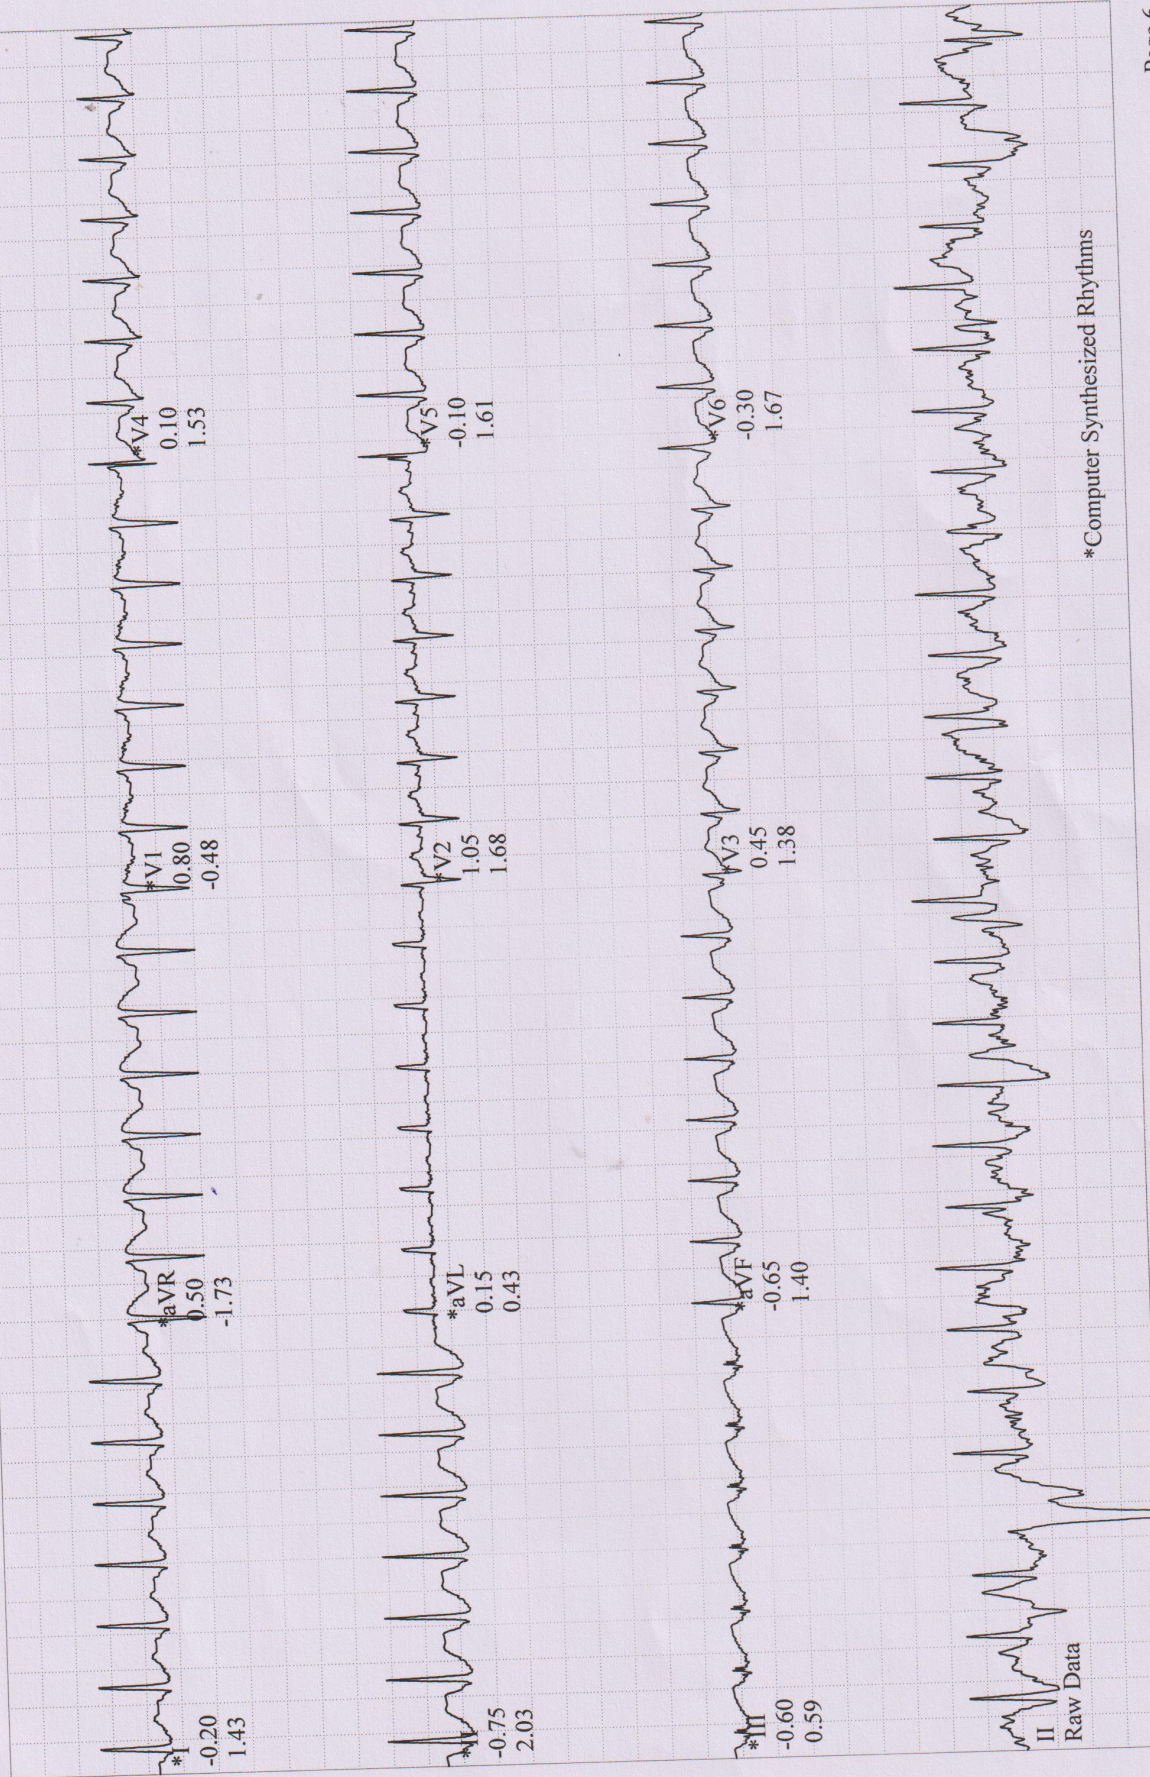 *I
-0.20
1.43
*aVR
0.50
-1.73
*V1
0.80
-0.48
*V4
0.10
1.53
*II
-0.75
2.03
*aVL
0.15
0.43
*V2
1.05
1.68
*V5
-0.10
1.61
*III
-0.60
0.59
*aVF
-0.65
1.40
*V3
0.45
1.38
*V6
-0.30
1.67
II
Raw Data
*Computer Synthesized Rhythms